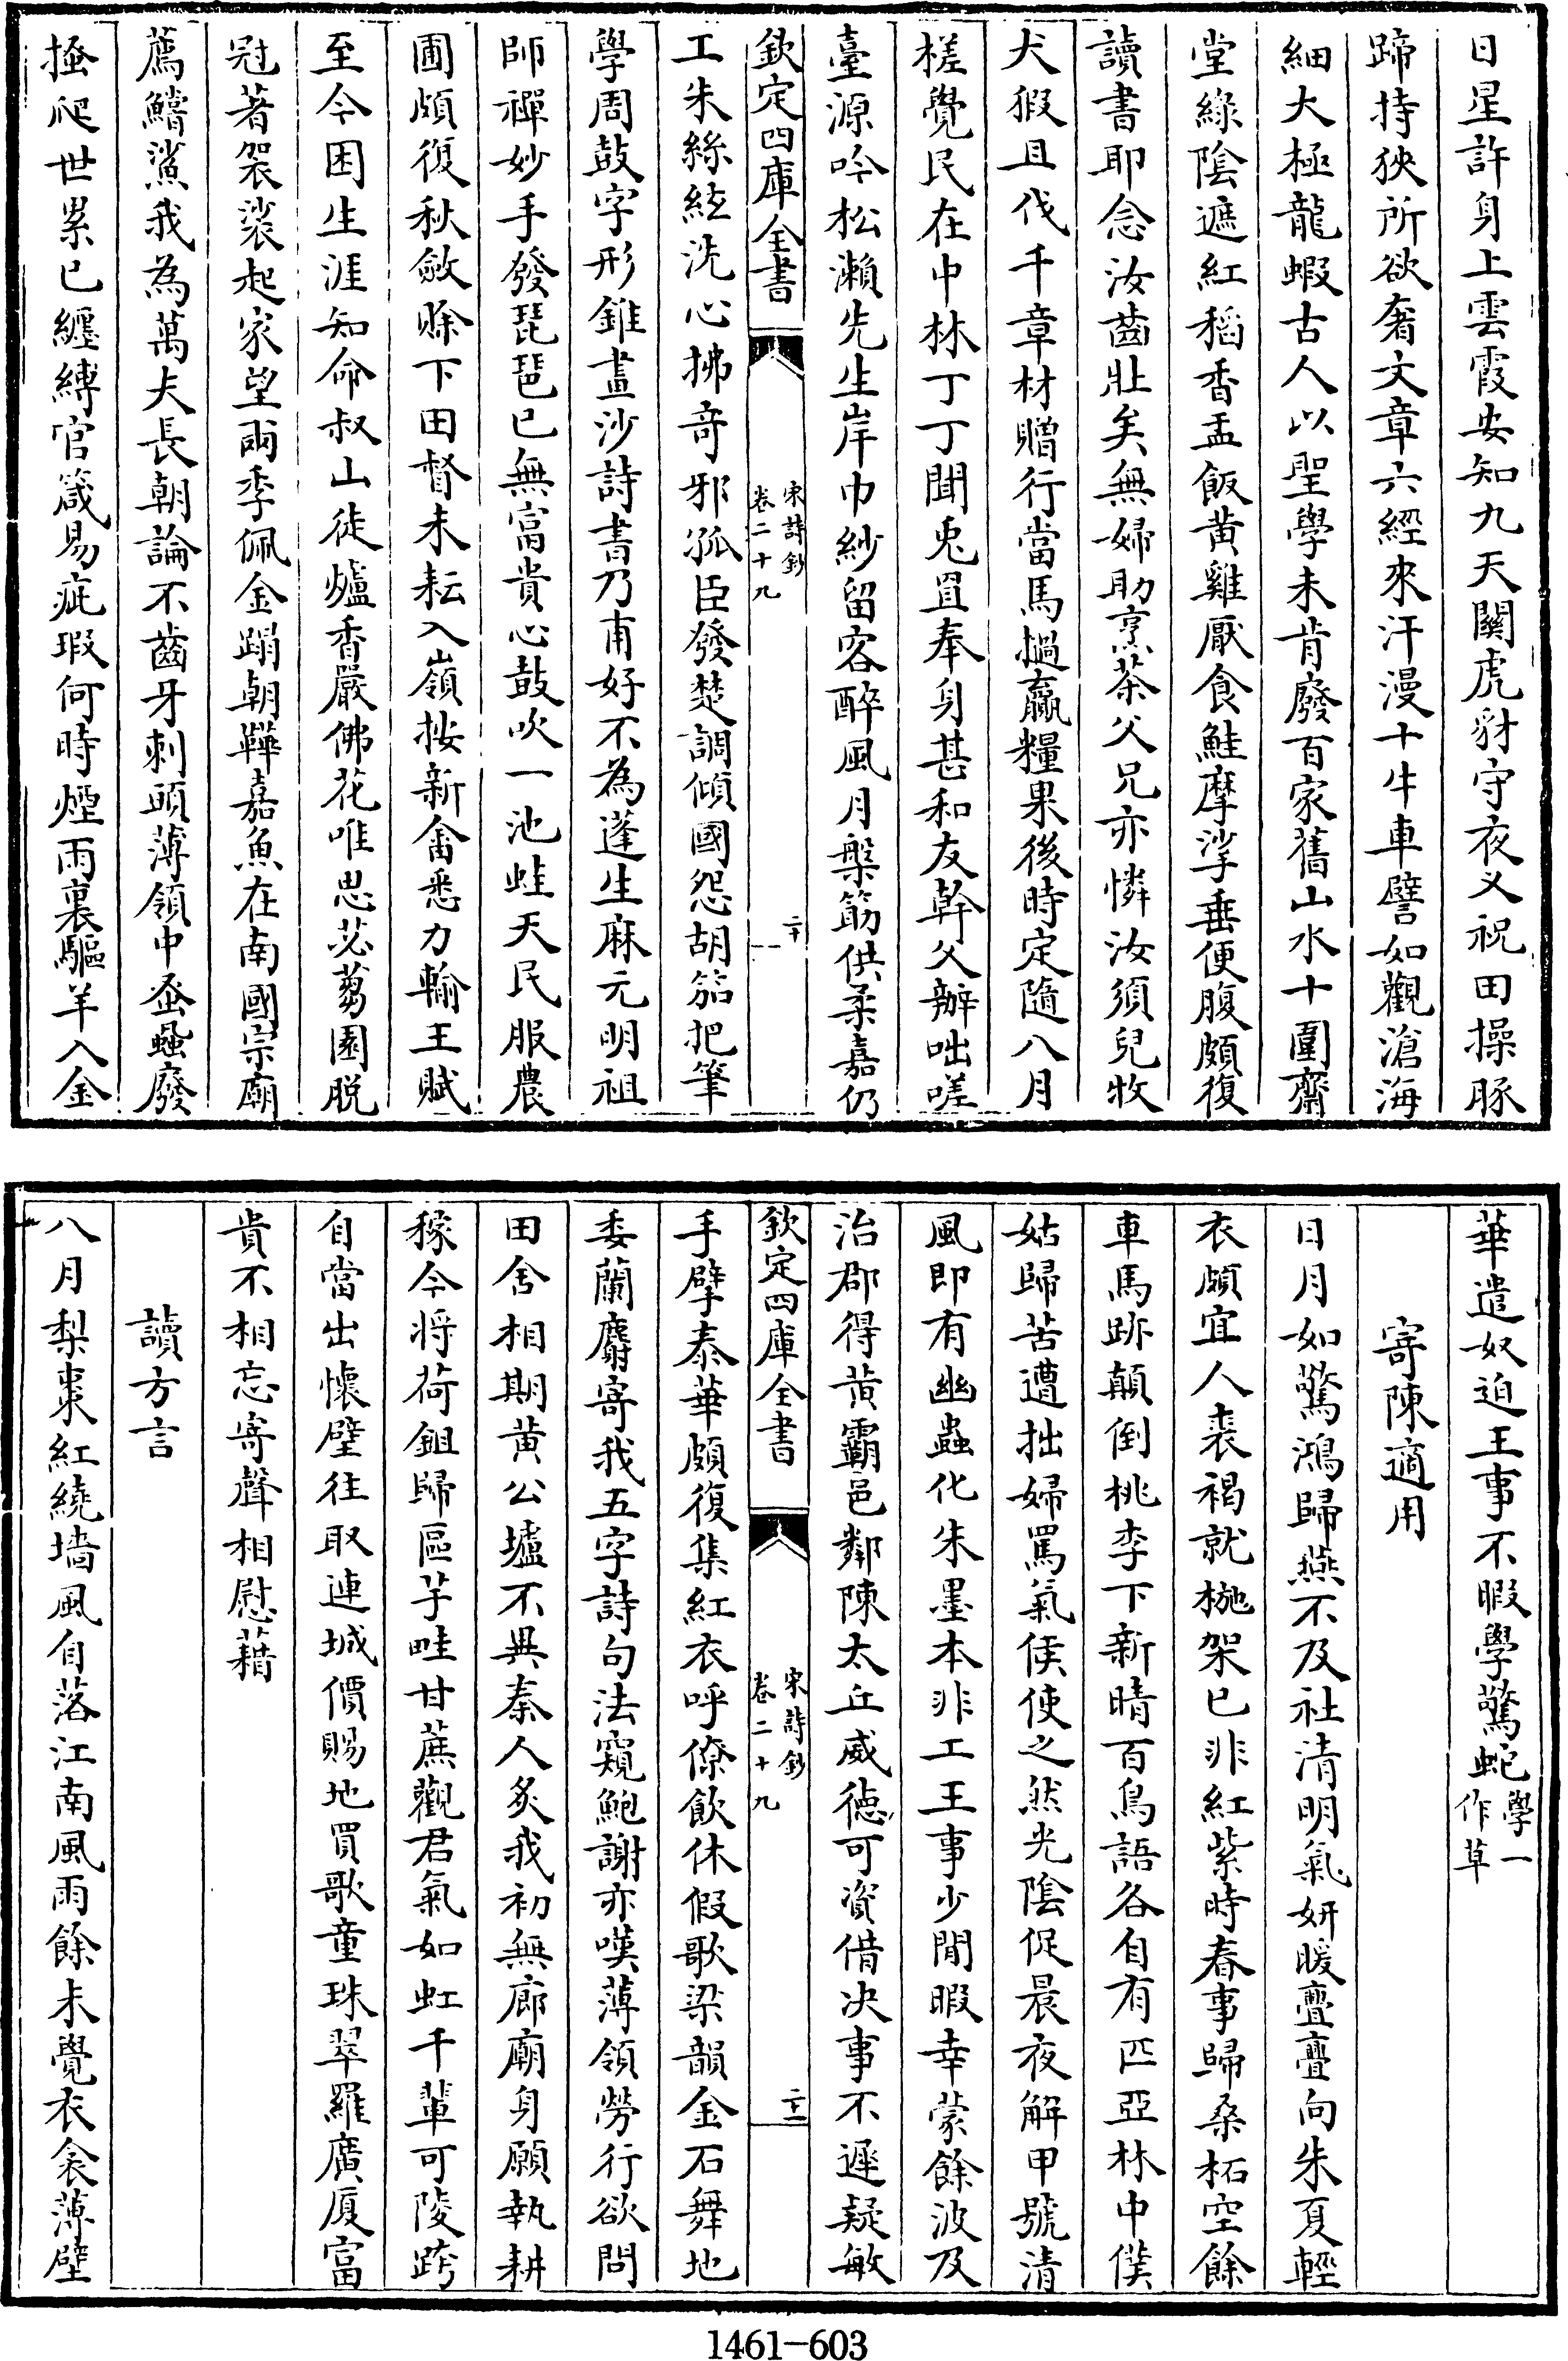 日星許身上雲霞安知九天關虎豺守夜乂祝田操豚
蹄持狹所欲奢文章六經來汗漫十牛車譬如觀滄海
細大極龍蝦古人以聖學未肯廢百家舊山水十圍齋
堂綠陰遮紅稻香盂飯黃雞厭食鮭摩挲垂便腹頗復
讀書耶念汝齒壯矣無婦助烹茶父兄亦憐汝須兒牧
犬猳且伐千章材贈行當馬撾羸糧果後時定隨八月
槎覺民在中林丁丁聞兎罝奉身甚和友幹父辦咄嗟
臺源吟松瀨先生岸巾紗留客醉風月槃筯供柔嘉仍
欽定四庫全書 宋詩鈔 卷二十九 二十
工朱絲絃洗心拂竒邪孤臣發楚調傾國怨胡笳把筆
學周鼓字形錐畫沙詩書乃甫好不為蓬生麻元明祖
師禪妙手發琵琶已無富貴心鼓吹一池蛙天民服農
圃頗復秋斂賒下田督未耘入嶺按新畬悉力輸王賦
至今困生涯知命叔山徒爐香嚴佛花唯思苾蒭園脱
冠著袈裟起家望兩季佩金蹋朝鞾嘉魚在南國宗廟
薦鱨鯊我為萬夫長朝論不齒牙刺頭薄領中蚤蝨廢
搔爬世累已纏縛官箴易疵瑕何時煙雨裏驅羊入金
華遣奴迫王事不暇學驚蛇學一作草
寄陳適用
日月如驚鴻歸燕不及社清明氣妍暖亹亹向朱夏輕
衣頗宜人裘褐就椸架已非紅紫時春事歸桑柘空餘
車馬跡顛倒桃李下新晴百鳥語各自有匹亞林中僕
姑歸苦遭拙婦罵氣侯使之然光隂促晨夜解甲號清
風即有幽蟲化朱墨本非工王事少閒暇幸蒙餘波及
治郡得黄霸邑鄰陳太丘威徳可資借决事不遲疑敏
欽定四庫全書 宋詩鈔 卷二十九 二十一
手擘泰華頗復集紅衣呼僚飲休假歌梁韻金石舞地
委蘭麝寄我五字詩句法窺鮑謝亦嘆薄領勞行欲問
田舍相期黄公壚不異秦人炙我初無廊廟身願執耕
稼今将荷鉏歸區芋畦甘蔗觀君氣如虹千輩可陵跨
自當出懷璧往取連城價賜地買歌童珠翠羅廣厦富
貴不相忘寄聲相慰藉
讀方言
八月梨棗紅繞墻風自落江南風雨餘未覺衣衾薄壁
1461-603